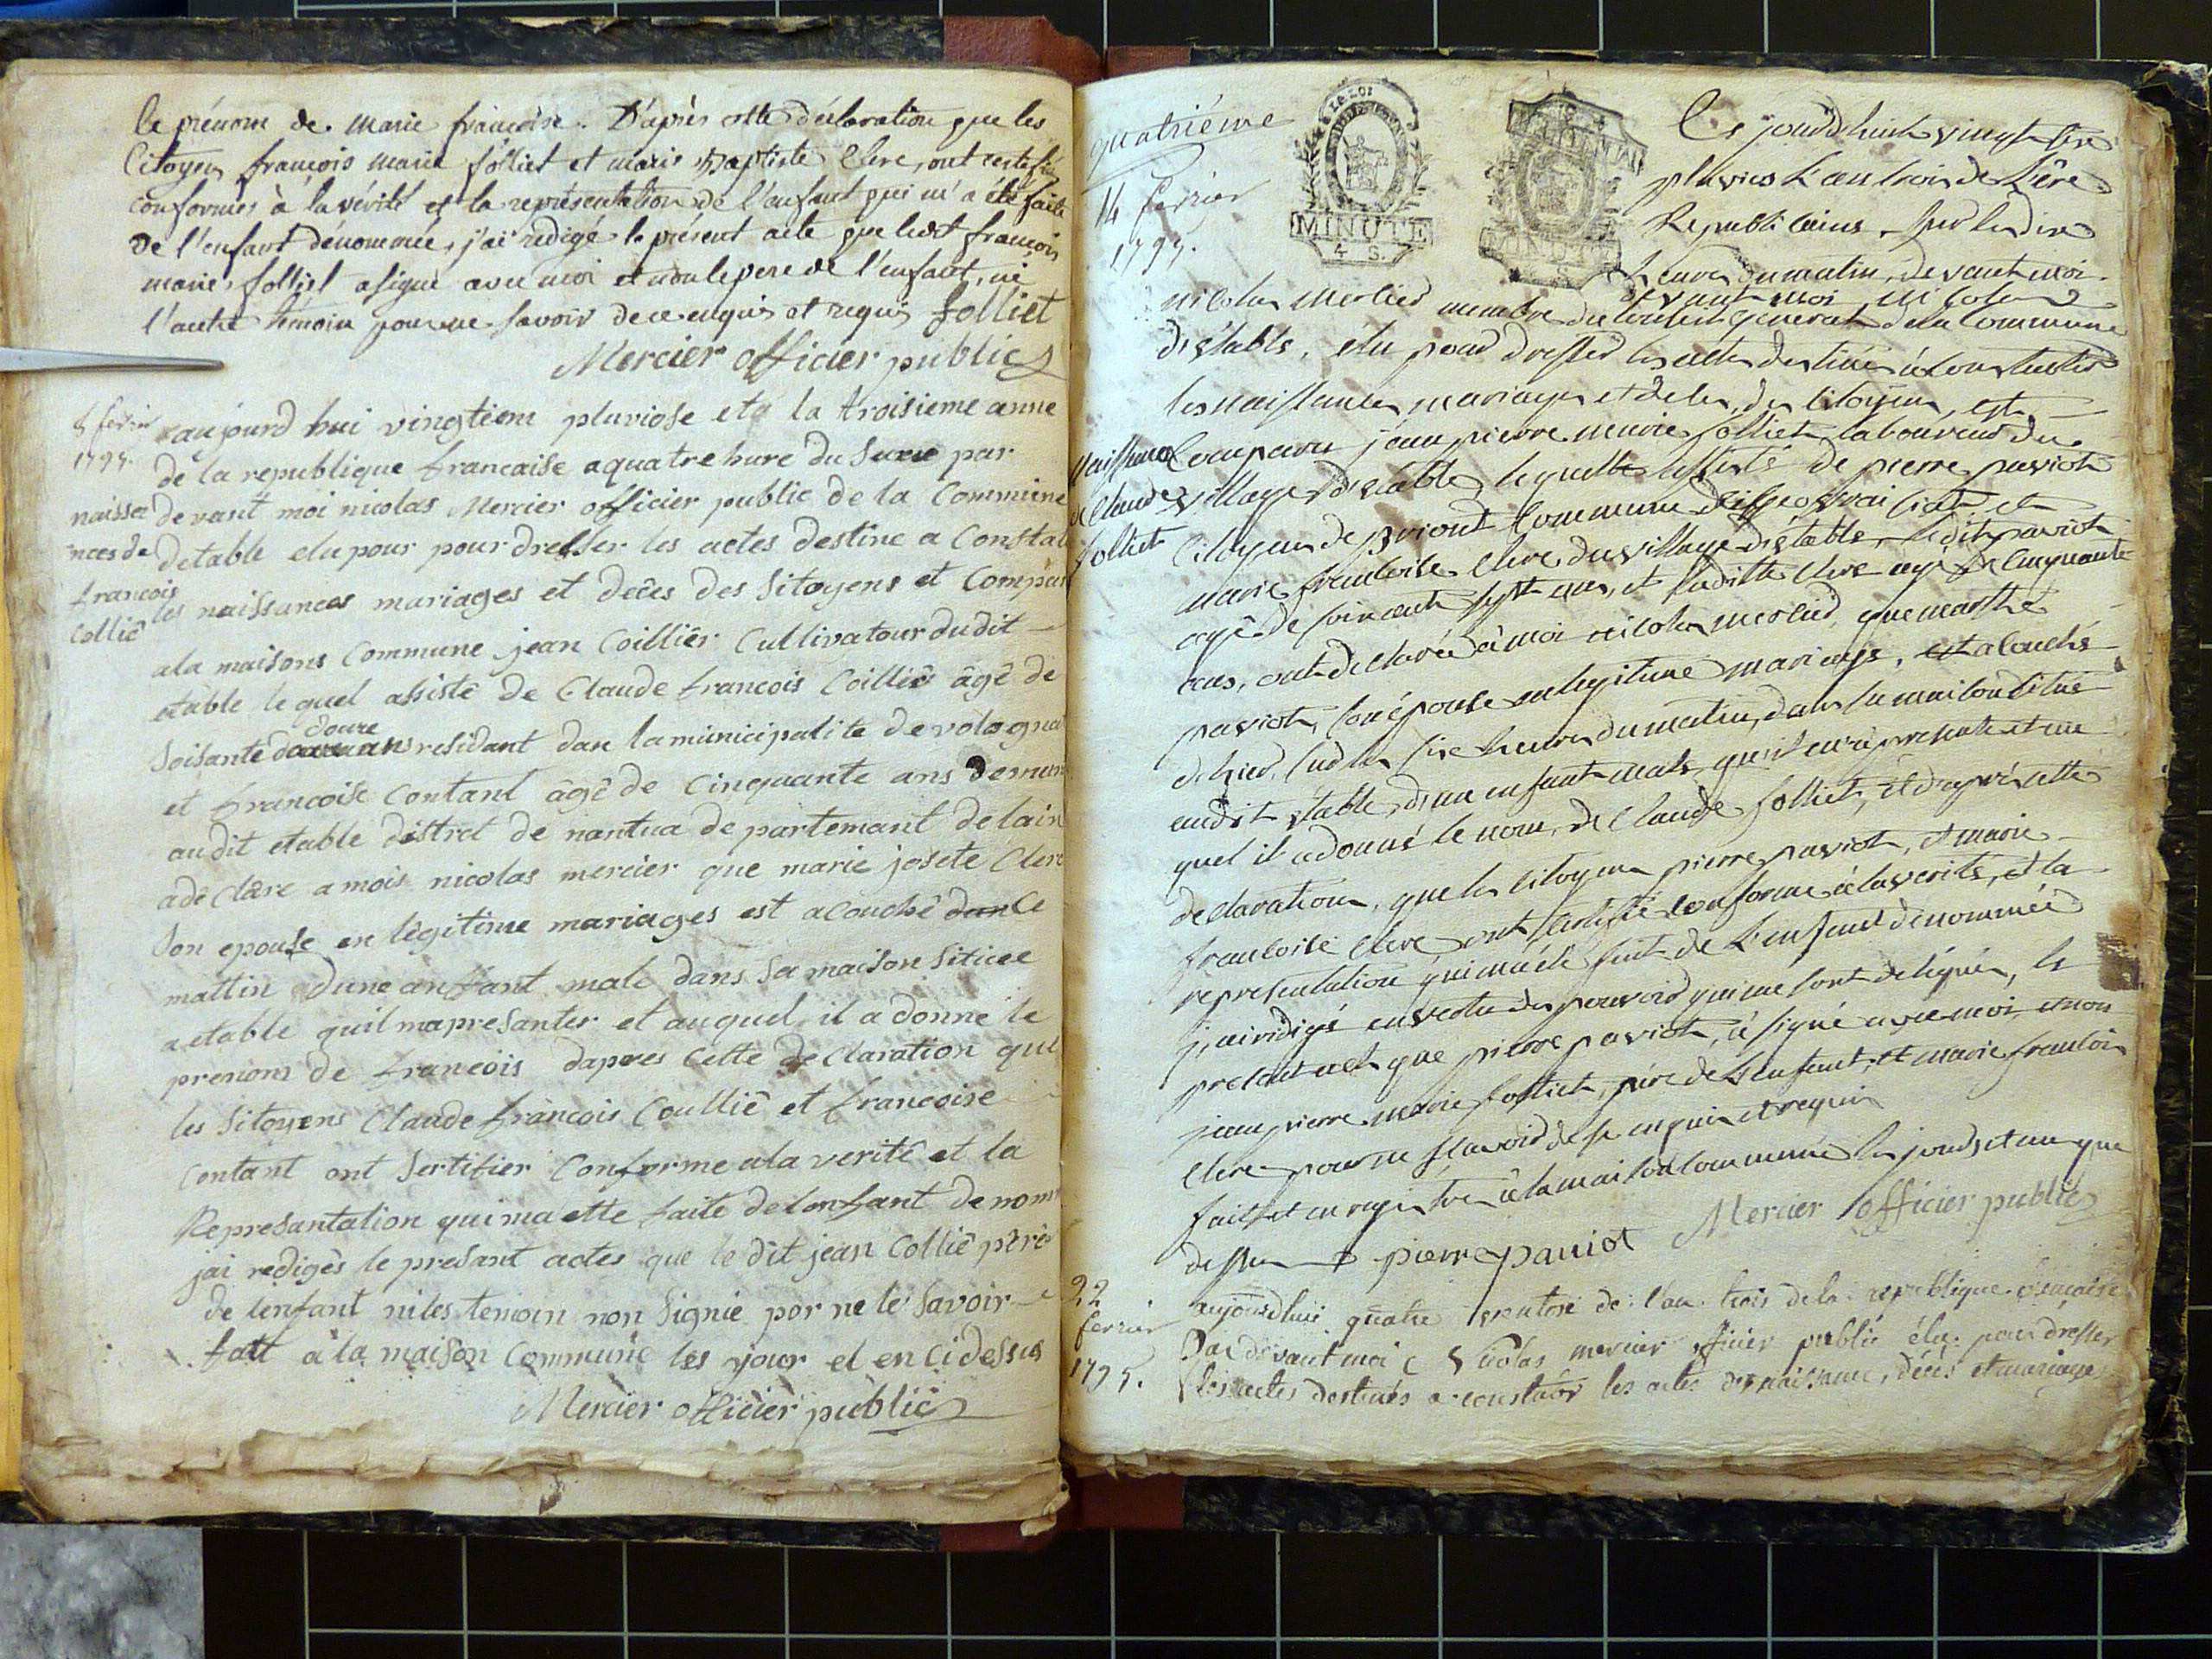 le prénom de marie françoise. D'après cette déclaration que les
Citoyens françois marie folliet et marie Baptiste Clerc, ont certifié
conformes à la vérité et la représentation de l'enfant qui m'a été faite
de l'enfant dénommée, j'ai redigé le présent acte que ledit françois
marie folliet a signé avec moi et non le pere de l'enfant, ni
l'autre témoin pour ne savoir de ce enquis et requis folliet
Mercier officier public
8 fevrier
1795.
naissa
nces de
francois
Colliê
aujourd hui vingtiem pluviose eta la troisieme anne
de la republique francaise a quatre hure du Suere par
devant moi nicolas Mercier officier public de la Commune
detable elu pour pour dresser les actes destine a Constat
les naissances mariages et decês des Sitoyens et Compar
a la maisons Commune jean Coilliêr Cultivatour dudit
etable le quel assistê de Claude francois Coilliê âgê de
doure
Soisante residant dan la municipalite de vologna
et francoise Contant âgê de Cinquante ans demeur
audit etable distret de nantua de partemant de lain
adêclâre a mois nicolas mercier que marie josete Clerc
Son epouse en lêgitime mariages est acouchê dan Ce
mattin dune anfant male dans Sa maison Situee
a etable quil mapresanter et auquel il a donné le
prenom de francois dapres Cette declaration que
les Sitoyens Claude francois Coulliê et francoise
Contant ont Sertifier Conforme ala veritê et la
Represantation qui ma ette faite de lenfant denom
jai redigês le presant actes que le dit jean Colliê père
de lenfant ni les temoin non Signie por ne le Savoir
fait à la maison Commune les your et en Ci dessus
Mercier officier public
quatriéme
14 fevrier
1795.
MINUTE
4 S.
MINUTE
4 S.
Ce jourd'huit vingt six
pluvios L'an trois de L'êre
Republicaine, sur les dix
heures du matin, devant moi
devant moi nicolas
nicolas Mercier membre du Conseil general de la Commune
d'êtable, elu pour dresser les actes destinés à constater
les naissances mariages et deces, des Citoyens, est
Naissance
de Claude
folliet
Comparu jean pierre marie folliet laboureur du
village d'êtable, lequelle assisté de pierre paviot
Citoyen de priout Commune et
marie francoise Clerc du village d'êtable, ledit paviot
agé de soixante sept ans, et laditte Clerc agé de Cinquante
ans, ont declarée à moi nicolas mercier, que marthe
paviot, son épouse en legitime mariage, est acouchés
d'hier, sur les six heures du matin, dans sa maison situé
audit êtable, d'un enfant male, qu'il m'a presenté et au
quel il a donné le nom, de Claude folliet, et d'après cette
declaration, que les citoyens pierre paviot, et marie
francoise Clerc ont certifié conforme à la verité, et la
representation qui m'a été fait de L'enfant denommée
j'ai redigé en vertu des pouvoir qui me sont delegués, le
present acte que pierre paviot, à signé avec moi et non
jean pierre marie folliet, père de L'enfant, et marie francois
Clere pour ne scavoir de ce enquis et requis
fait et enregistré à la maison Commune les jours et an que
dessus pierre paviot Mercier officier public
22
fevrier
1795.
aujourd'hui quatre ventose de l'an trois de la republique francaise
Par devant moi Nicolas mercier officier public élu pour dresser
les actes destinés a constater les actes de naissance, décès et mariages